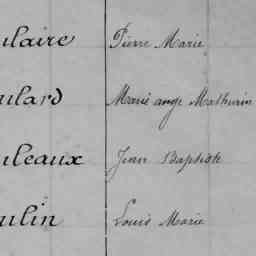 ulaire Pierre Marie
ulard Marie ange Mathurin
uleaux Jean Baptiste
ulin Louis Marie